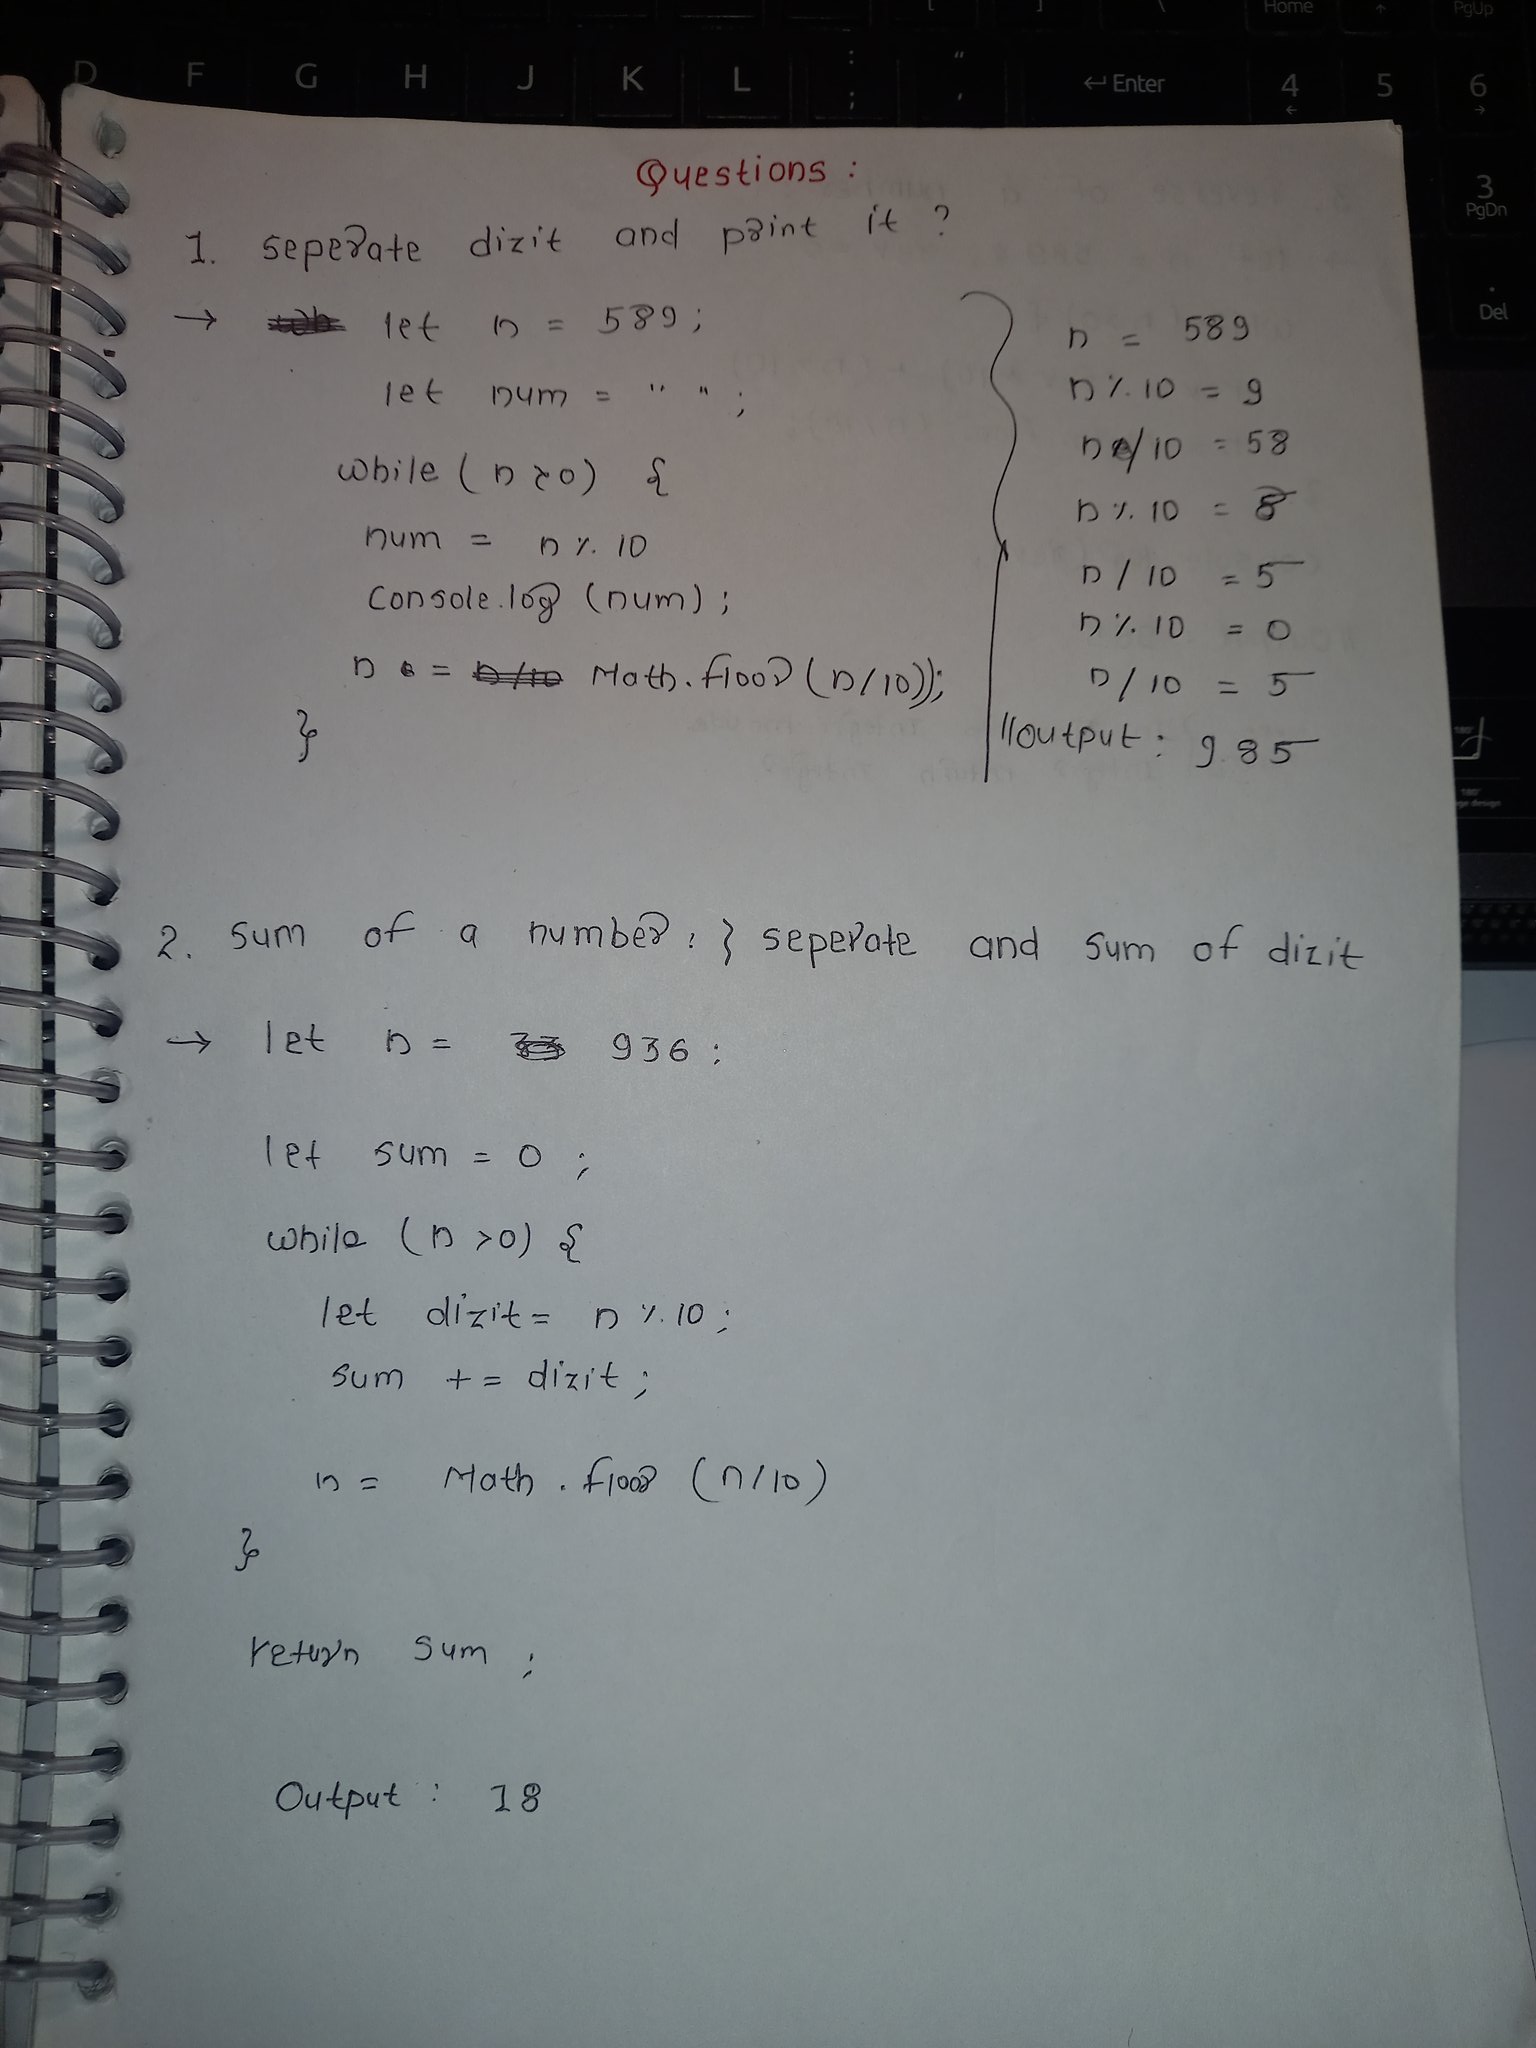 D F G H J K L : ; " ' ↵ Enter 4 ← 5 6 →
[ ] \ Home ↑ PgUp
3 PgDn
. Del
Questions :
1. seperate dizit and print it ?
→ let n = 589;
let num = " " ;
while ( n >0) {
num = n % 10
Console.log (num) ;
n = Math.floor (n/10));
}
n = 589
n % 10 = 9
n / 10 = 58
n % 10 = 8
n / 10 = 5
n % 10 = 0
n / 10 = 5
//output : 985
180°
2. sum of a number : } seperate and sum of dizit
→ let n = 936 ;
let sum = 0 ;
while (n >0) {
let dizit = n % 10 ;
sum += dizit ;
n = Math . floor (n/10)
}
return sum ;
Output : 18